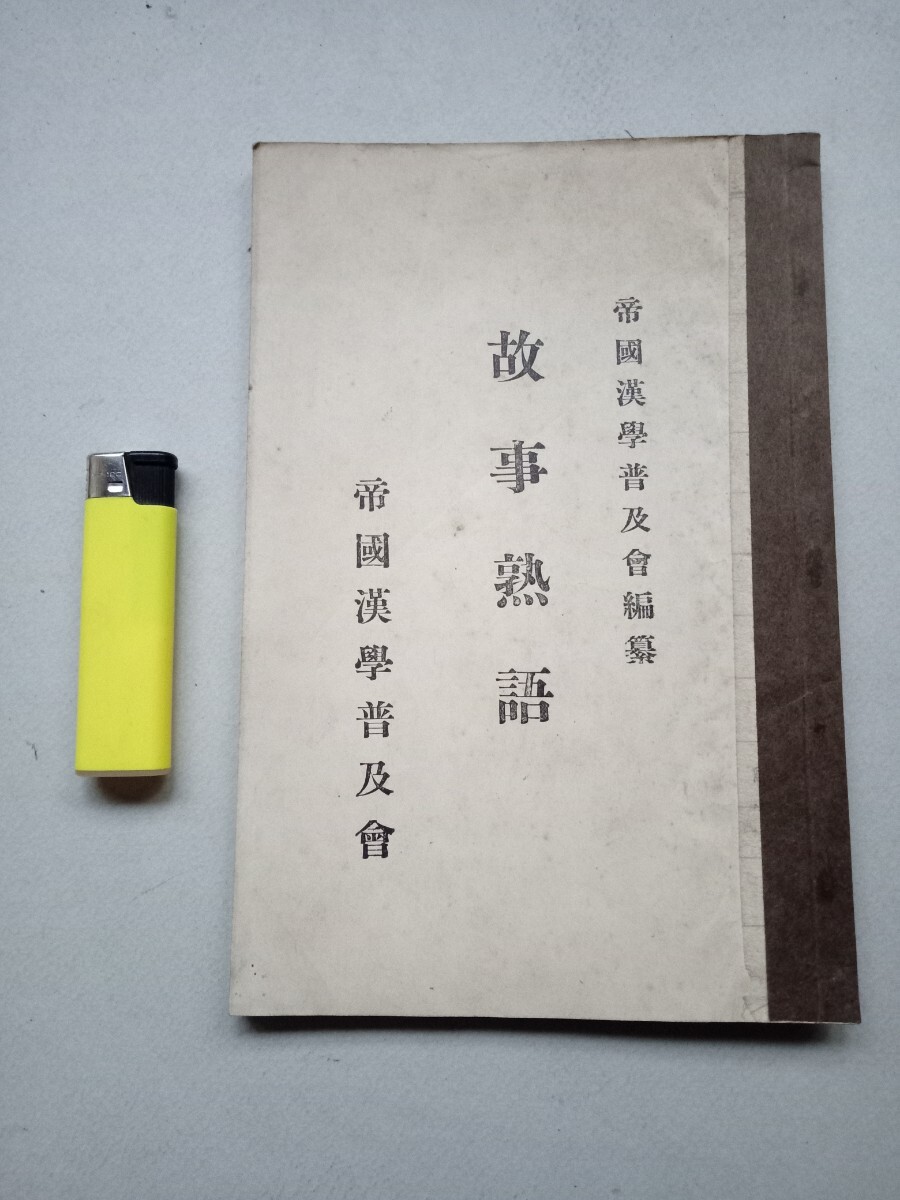 帝國漢學普及會編纂
故事熟語
帝國漢學普及會